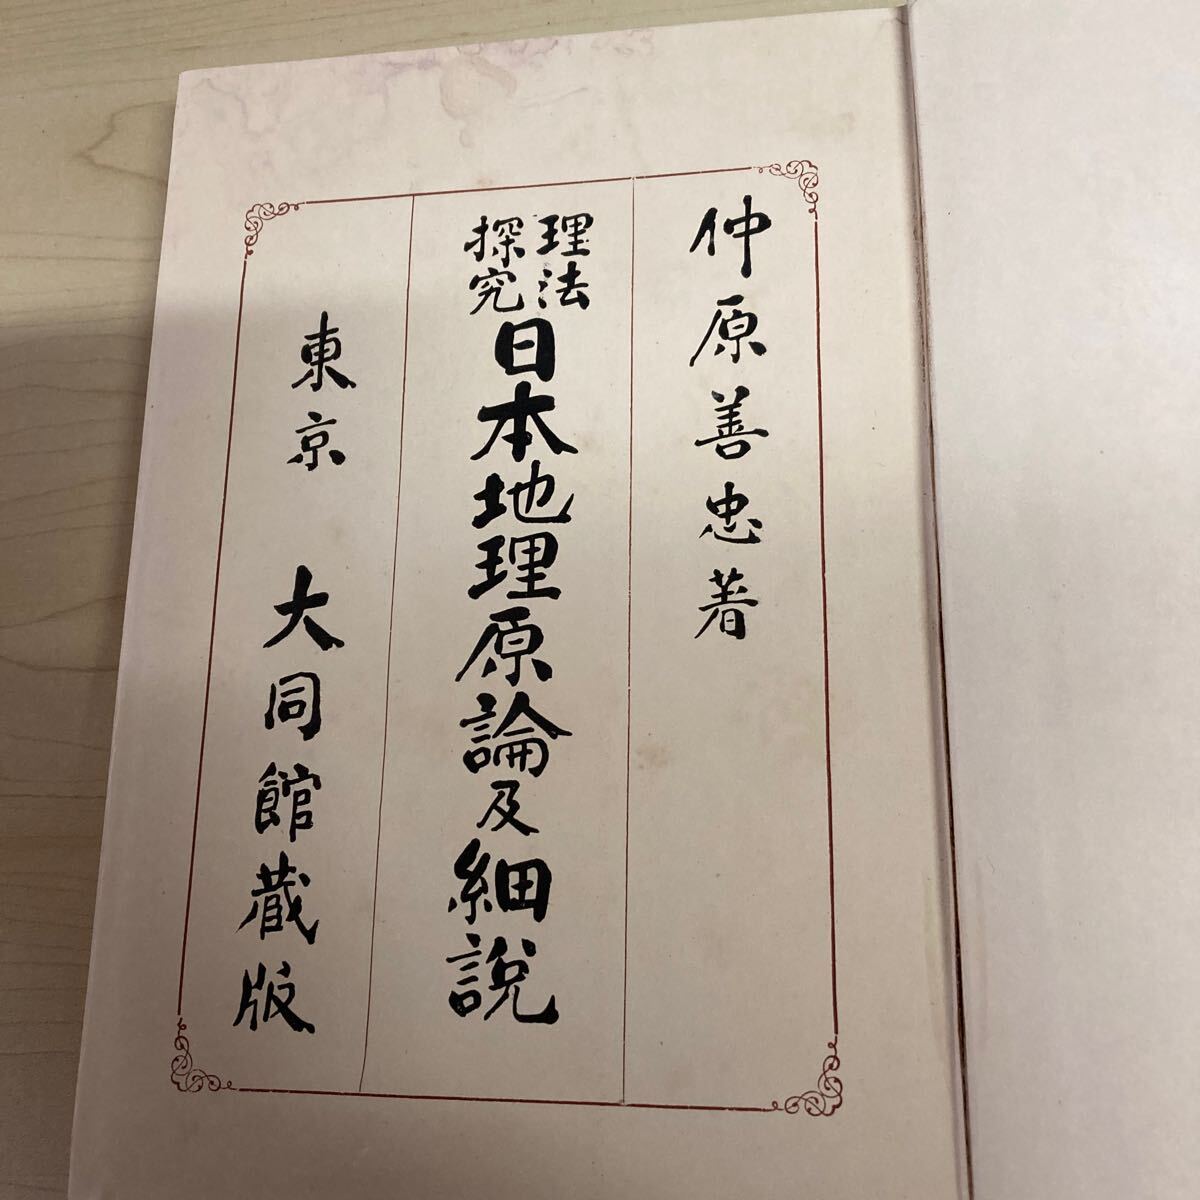 仲原善忠著
理法
探究
日本地理原論及細説
東京 大同館蔵版